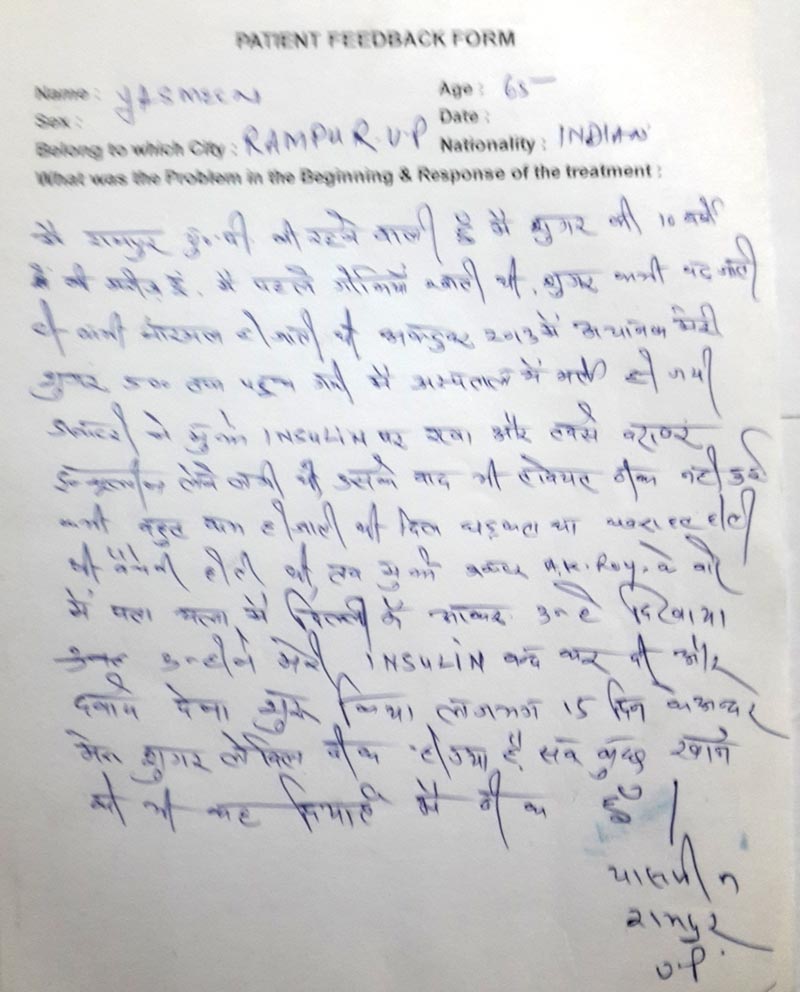 PATIENT FEEDBACK FORM
Name : YASMEEN Age : 65
Sex : Date :
Belong to which City : RAMPUR. U.P Nationality : INDIAN
What was the Problem in the Beginning & Response of the treatment :
मै रामपुर यु॰ पी॰ की रहने वाली हूँ मै शुगर की 10 वर्षो
से की मरीज़ हूं. मै पहले गोलियाँ खाती थी, शुगर कभी बढ जाती
थी कभी नारमल हो जाती थी अक्टूबर 2013 में अचानक मेरी
शुगर 500 तक पहुच गयी मै अस्पताल में भर्ती हो गयी
डाक्टरो ने मुझे INSULIN पर रखा और तबसे बराबर
इन्सुलीन लेने लगी थी उसके बाद भी तबियत ठीक नही हुई
कभी बहुत कम हो जाती थी दिल धड़कता था घबराहट होती
थी बेचैनी होती थी, तब मुझे डाक्टर A.K. Roy. के बारे
में पता चला मै दिल्ली में आकर उन्हे दिखाया
उन्होने मेरी INSULIN बन्द कर दी और
दवाये देना शुरू किया लगभग 15 दिन के अन्दर
मेरा शुगर लेविल ठीक हो गया है, सब कुछ खाने
को भी कह दिया है मै ठीक हूँ।
यासमीन
रामपुर
U.P.